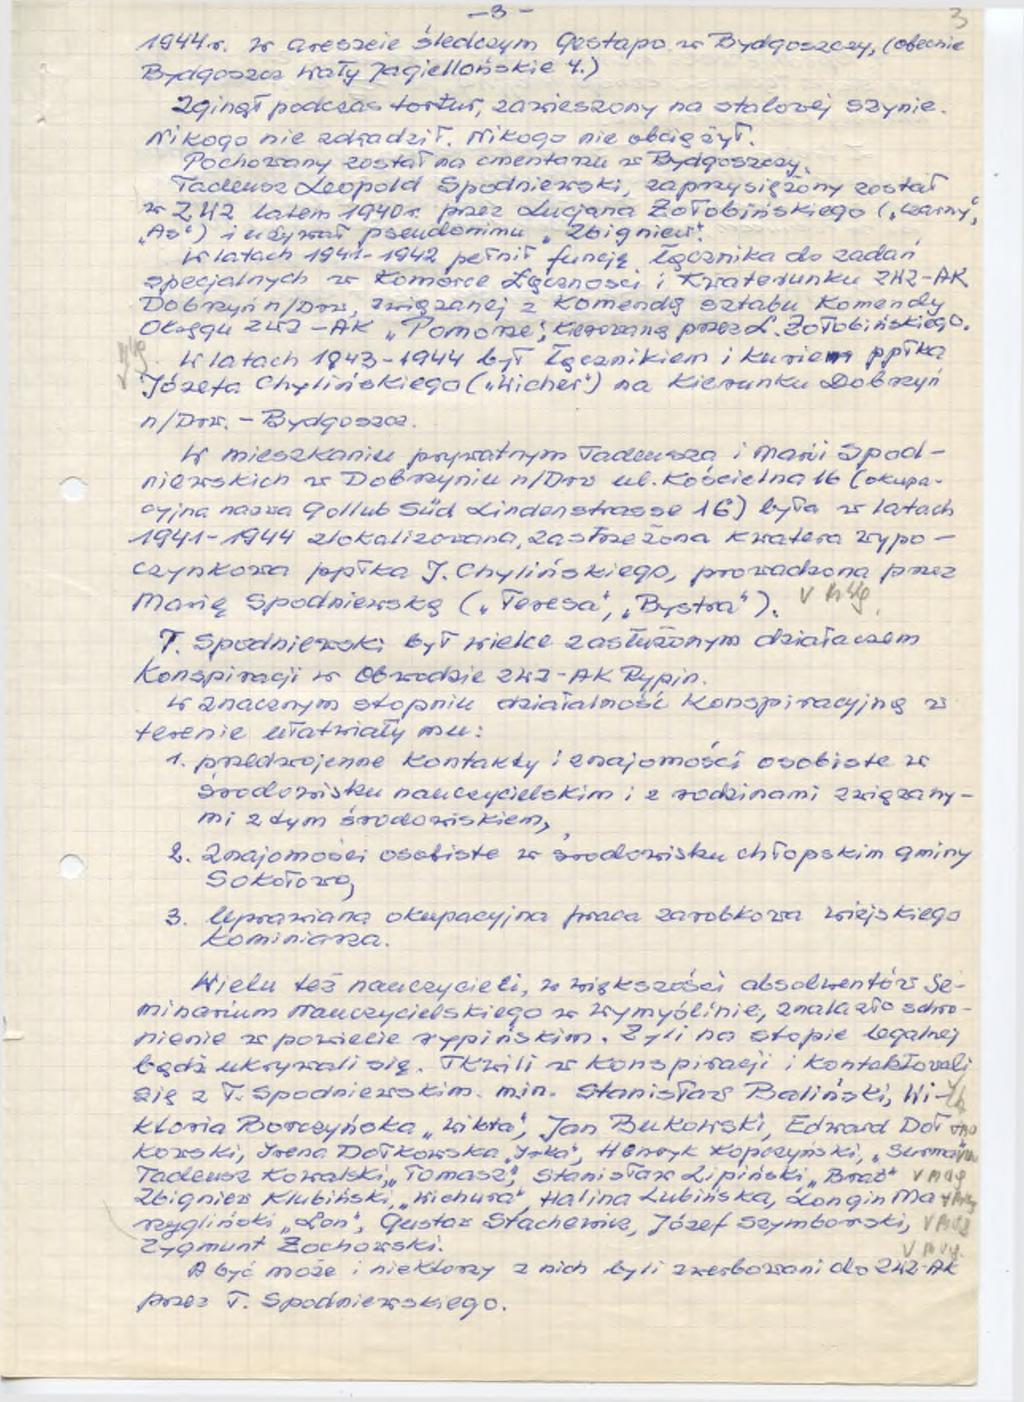 -3-
3
1944r. w areszcie śledczym Gestapo w Bydgoszczy, (obecnie
Bydgoszcz Wały Jagiellońskie 4.)
Zginął podczas tortur, zawieszony na stalowej szynie.
Nikogo nie zdradził. Nikogo nie obciążył.
Pochowany został na cmentarzu w Bydgoszczy.
Tadeusz Leopold Spodniewski, zaprzysiężony został
w ZWZ latem 1940r. przez Lucjana Żołobińskiego („Czarny",
„As") i używał pseudonimu „Zbigniew".
W latach 1941-1942 pełnił funcję łącznika do zadań
specjalnych w Komórce Łączności i Kwaterunku ZWZ-AK
Dobrzyń n/Drw, związanej z Komendą sztabu Komendy
Okręgu ZWZ-AK „Pomorze", kierowaną przez L. Żołobińskiego.
W latach 1943-1944 był łącznikiem i kurierem ppłka
Józefa Chylińskiego („Wicher") na kierunku Dobrzyń
n/Drw. - Bydgoszcz.
W mieszkaniu prywatnym Tadeusza i Marii Spod-
niewskich w Dobrzyniu n/Drw ul. Kościelna 16 (okupa-
cyjna nazwa Gollub Süd Lindenstrasse 16) była w latach
1941-1944 zlokalizowana, zastrzeżona kwatera wypo-
czynkowa ppłka J. Chylińskiego, prowadzona przez
Marię Spodniewską („Teresa", „Bystra").
T. Spodniewski był wielce zasłużonym działaczem
Konspiracji w Obwodzie ZWZ-AK Rypin.
W znacznym stopniu działalność konspiracyjną w
terenie ułatwiały mu:
1. przedwojenne kontakty i znajomości osobiste w
środowisku nauczycielskim i z rodzinami związany-
mi z tym środowiskiem,
2. znajomości osobiste w środowisku chłopskim gminy
Sokołowo,
3. Uprawiana okupacyjna praca zarobkowa wiejskiego
kominiarza.
Wielu też nauczycieli, w większości absolwentów Se-
minarium Nauczycielskiego w Wymyślinie, znalazło schro-
nienie w powiecie rypińskim. Żyli na stopie legalnej
bądź ukrywali się. Tkwili w konspiracji i kontaktowali
się z T. Spodniewskim. min. Stanisław Baliński, Wi-
ktoria Borczyńska „Wikta", Jan Bukowski, Edward Doł
kowski, Irena Dołkowska „Irka", Henryk Kopczyński, „Surma",
Tadeusz Kowalski, „Tomasz", Stanisław Lipiński „Brat"
Zbigniew Klubiński, „Wichura", Halina Lubińska, Longin Ma
rzygliński „Lon", Gustaw Stachewicz, Józef Szymborski,
Zygmunt Żochowski.
A być może i niektórzy z nich byli zwerbowani do ZWZ-AK
przez T. Spodniewskiego.